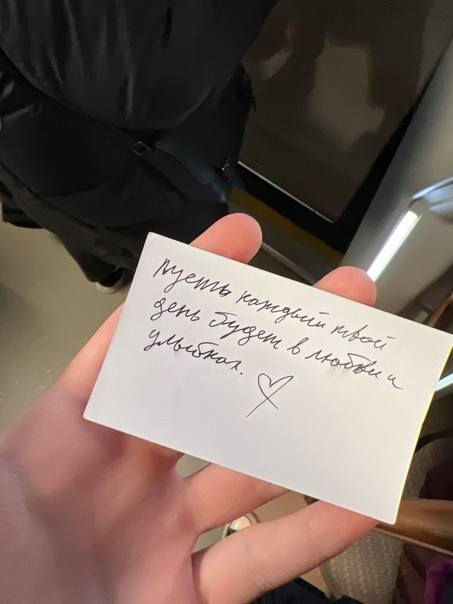 пусть каждый твой
день будет в любви и
улыбках.